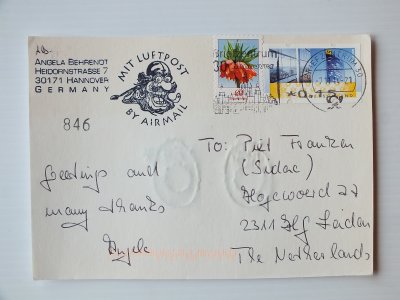 ANGELA BEHRENDT
HEIDORNSTRASSE 7
30171 HANNOVER
GERMANY
MIT LUFTPOST
BY AIRMAIL
846
*0,15
Greetings and
many thanks
Angela
To: Piet Franken
(Sidac)
2311 Leiden
The Netherlands